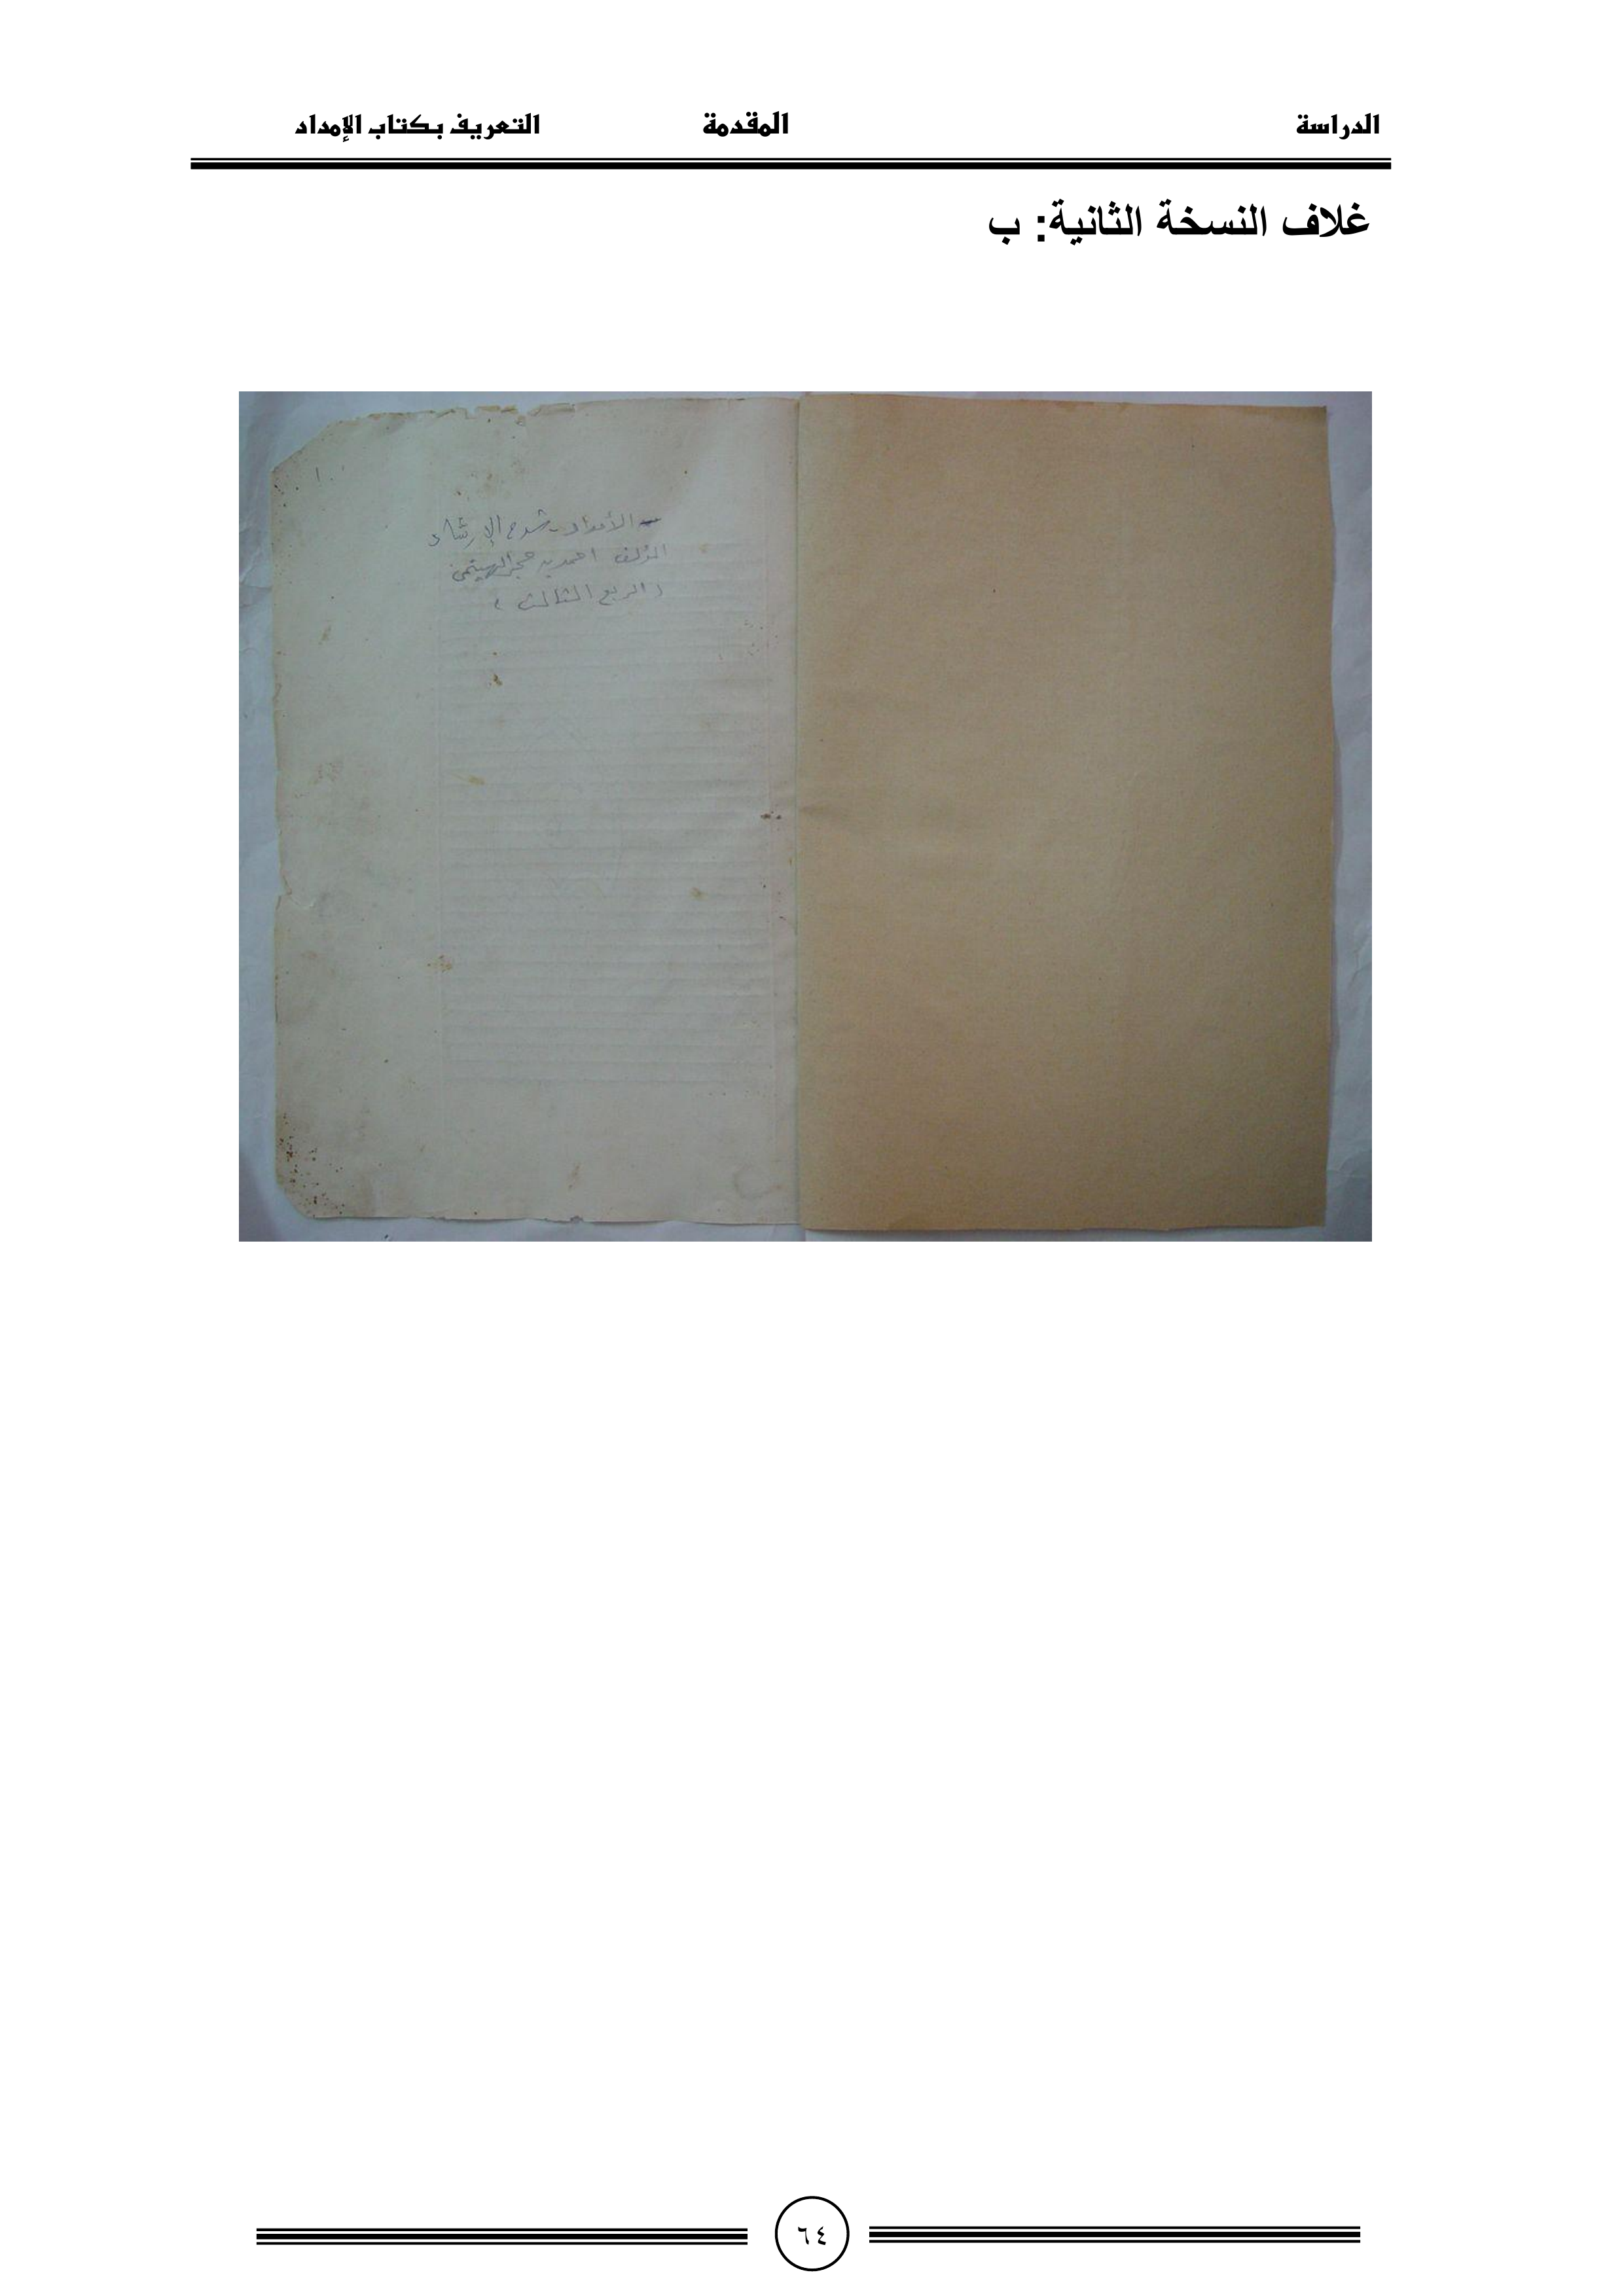 الدراسة المقدمة التعريف بكتاب الإمداد
غلاف النسخة الثانية: ب
الأمداد - شرح الإرشاد
المؤلف احمد بن حجر الهيتمي
(الربع الثالث)
٦٤